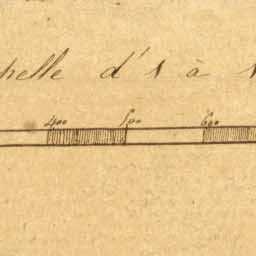 helle d'1 à
400 500 600